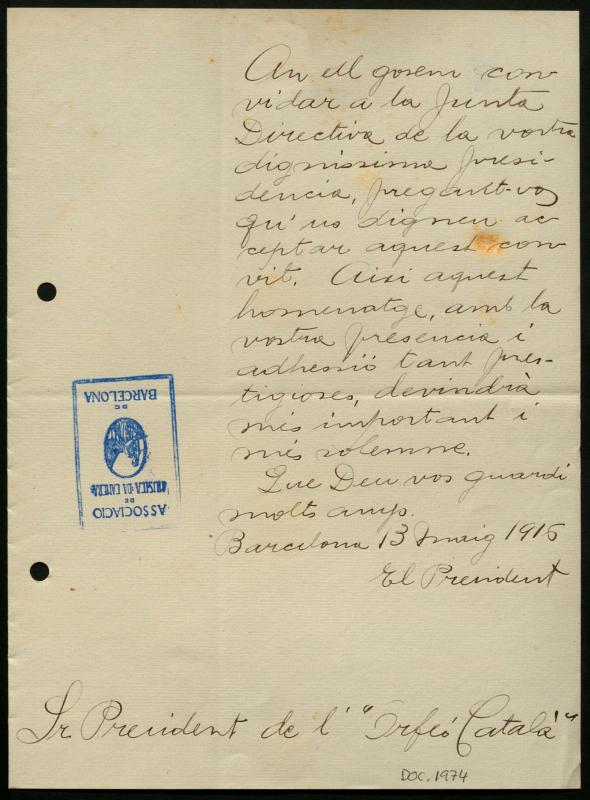 An ell gosem con-
vidar a la Junta
Directiva de la vostra
dignissima presi-
dencia, pregant-vos
qu'us digneu ac-
ceptar aquest con-
vit. Aixi aquest
homenatge, amb la
vostra presencia i
adhessió tant pres-
tigioses, devindrà
més important i
més solemne.
Que Deu vos guardi
molts anys.
Barcelona 13 Maig 1916
El President
ASSOCIACIO
DE
MUSICA "DA CAMERA"
DE
BARCELONA
Sr. President de l' "Orfeó Català"
DOC. 1974